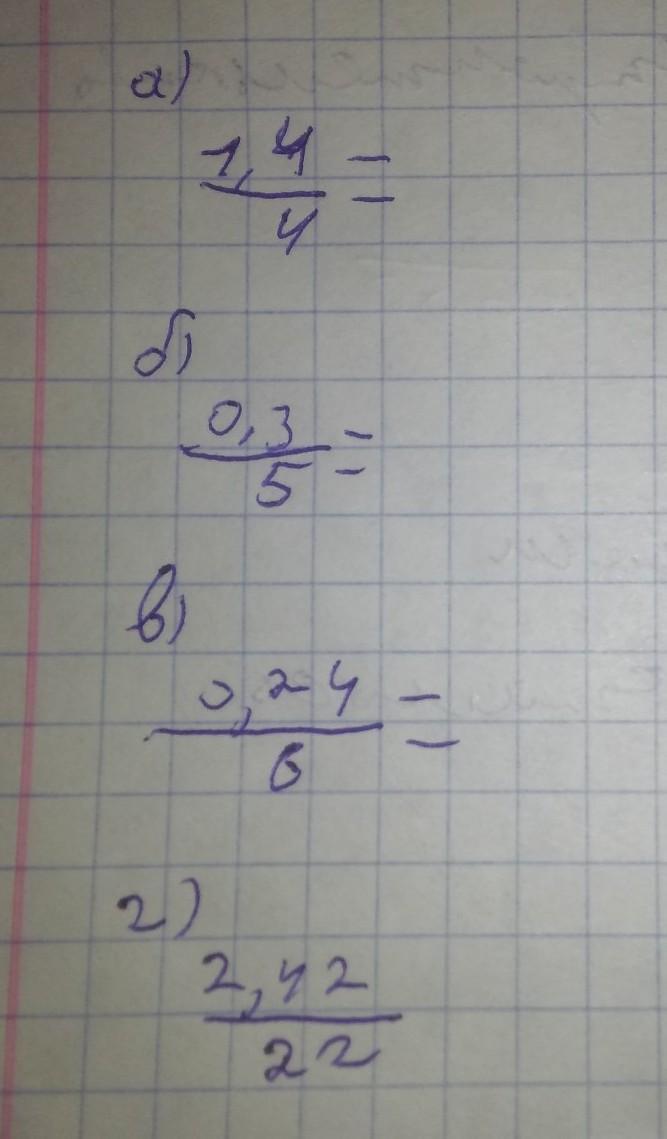 а)
1,4 =
4
б)
0,3 =
5
в)
0,24 =
6
г)
2,42
22